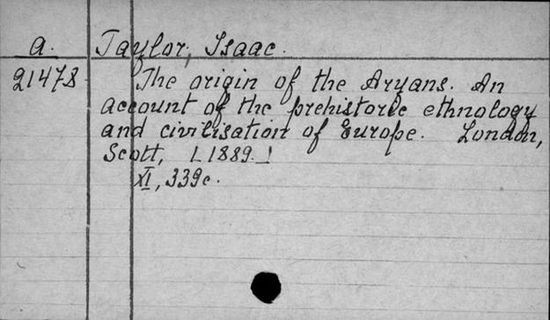 A. Taylor, Isaac.
21478 The origin of the Aryans. An
account of the prehistoric ethnology
and civilisation of Europe. London,
Scott, [1889.]
XI, 339c.